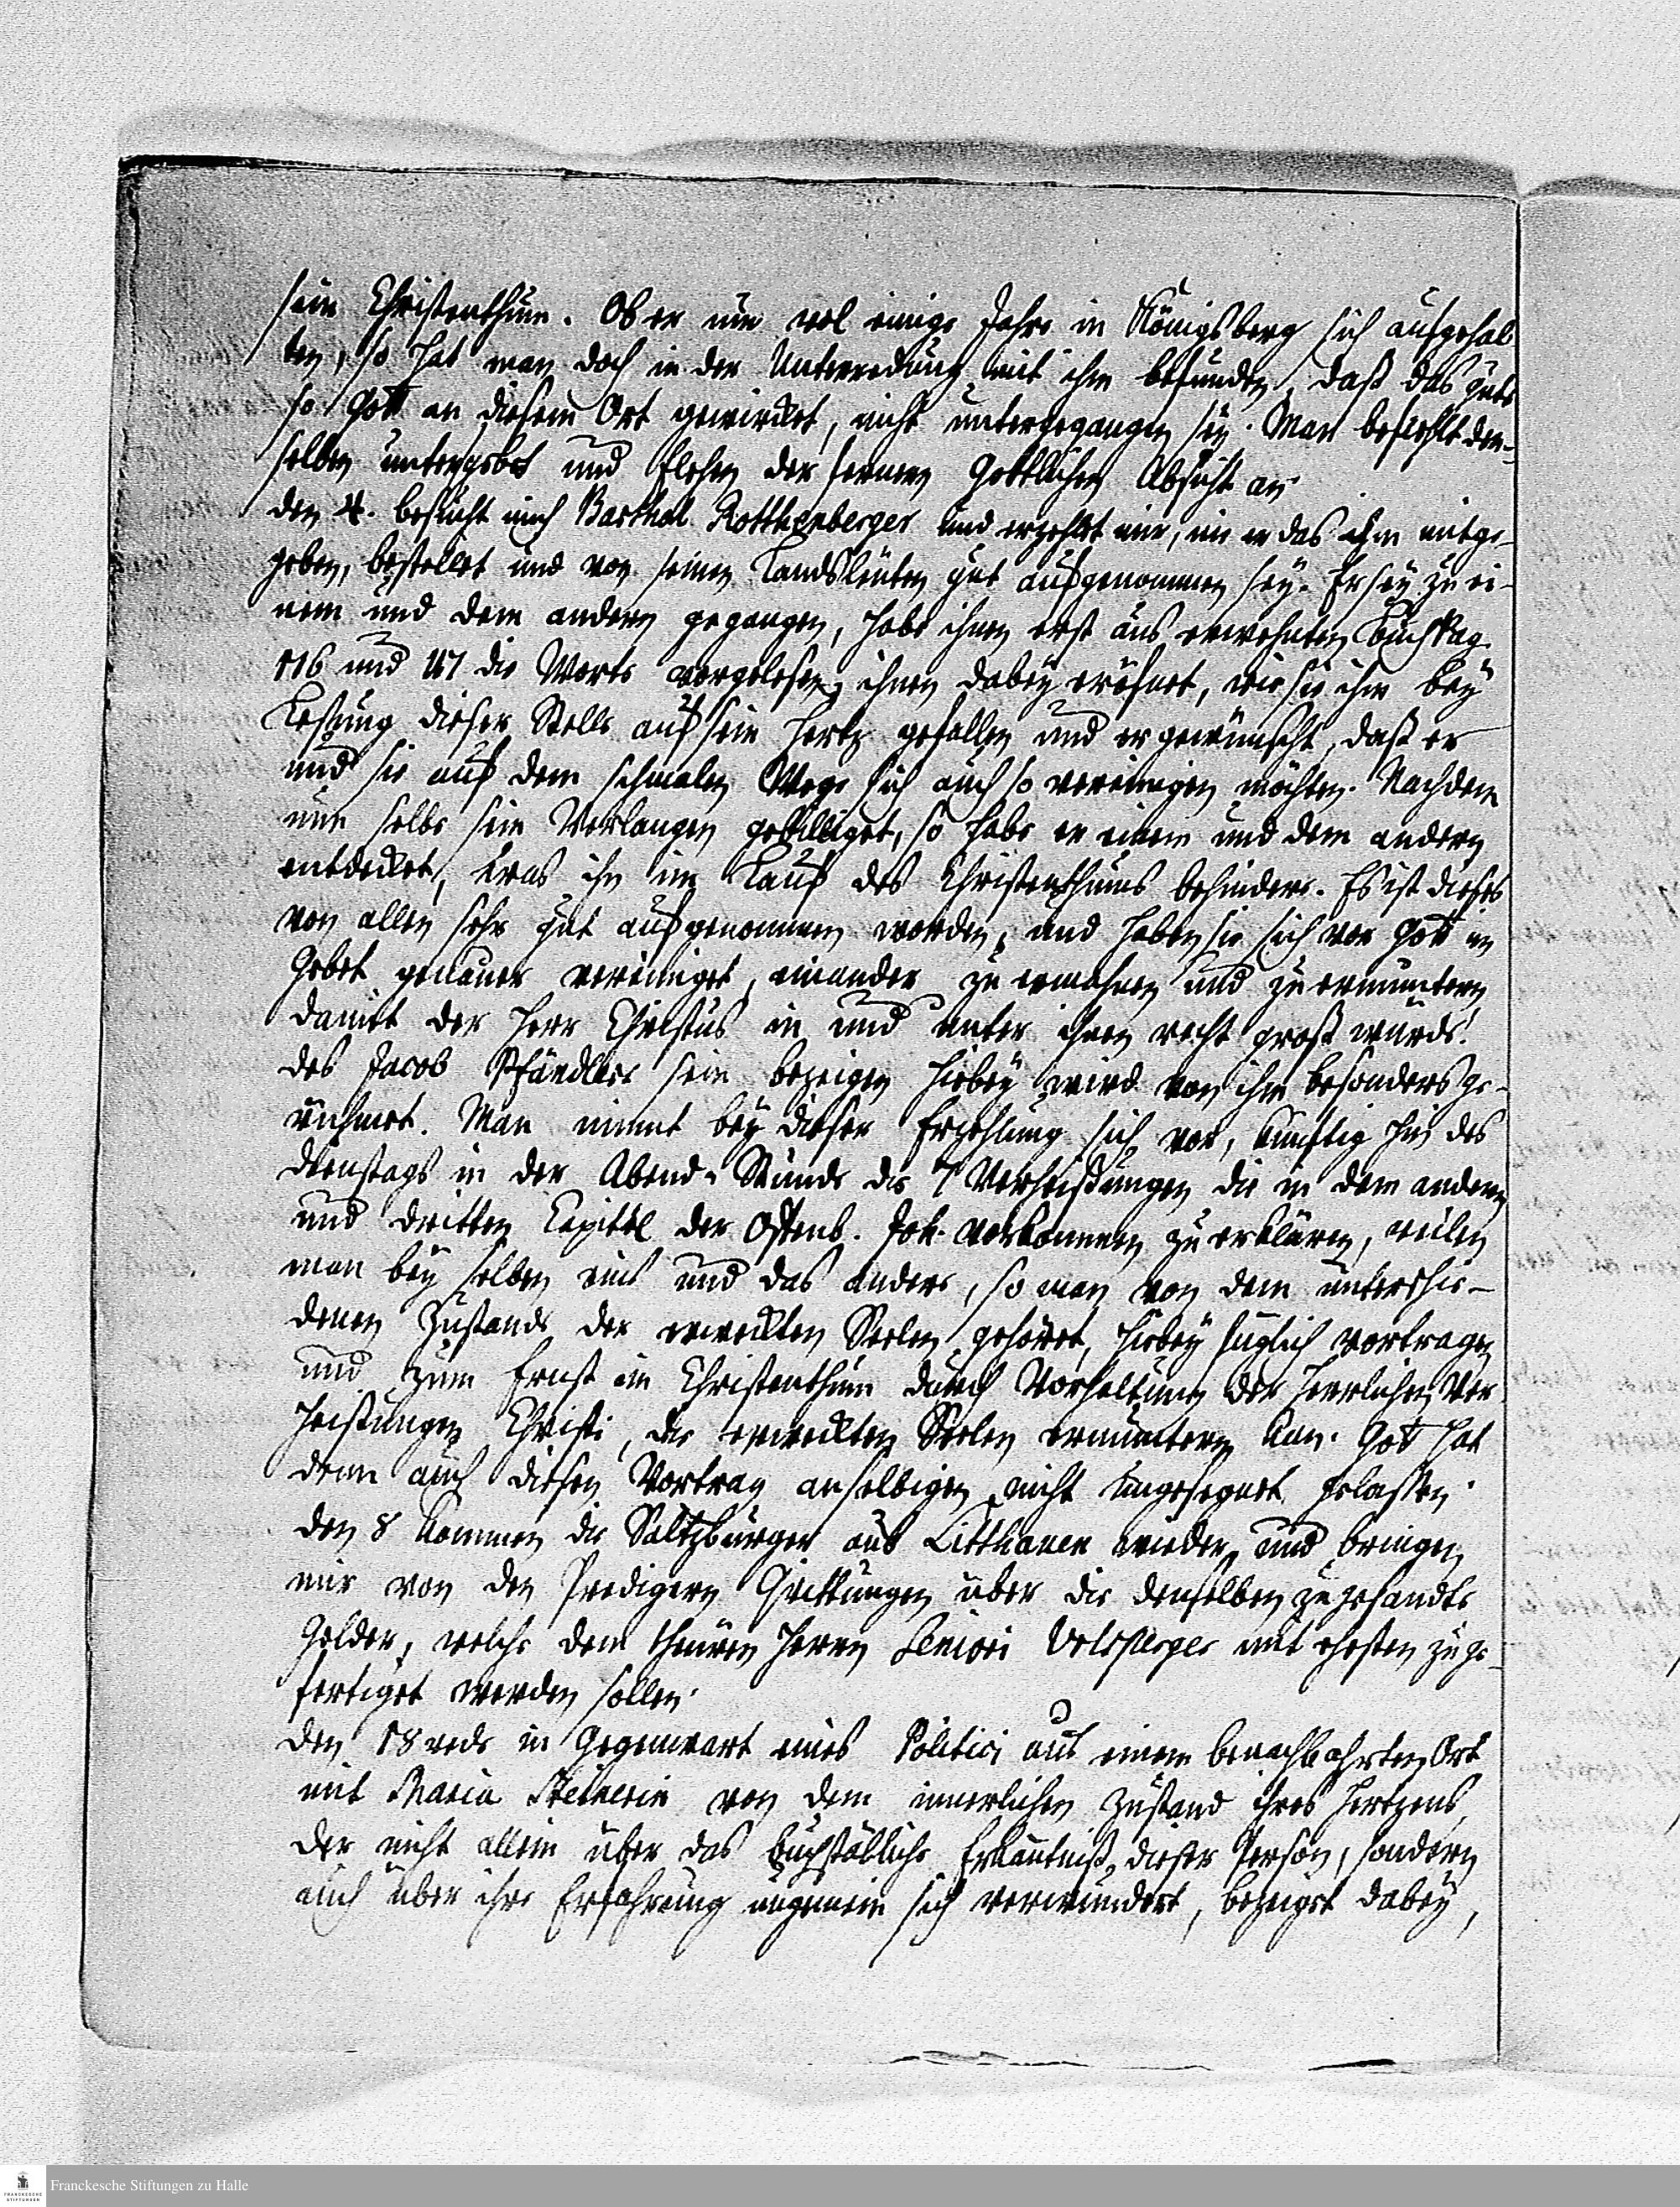 sein Christenthum. Ob er nun wol einige Jahre in Königsberg sich aufgehal
ten, so hat man doch in der Unterredung mit ihm befunden, daß das gute
so Gott an diesem Ort gewircket, nicht untergegangen sey. Man befiehlt den-
selben unter und flehen der fernern Göttlichen Absicht an.
den 4. besucht mich Barthel Rotthenberger und erzehlt mir, wie er das ihm mitge-
geben, bestellet und von seinen Landsleuten gut aufgenommen sey. Er sey zu ei-
nem und dem andern gegangen, habe ihnen erst aus erwehnten Buch Pag.
116 und 117 die Worte vorgelesen, ihnen dabey eröfnet, wie sie ihm bey
Lesung dieser Stelle auf sein Hertz gefallen und er gewünscht, daß er
und sie auf dem schmalen Wege sich auch so vereinigen möchten. Nachdem
nun selbe sein Verlangen gebilliget, so habe er einem und dem andern
entdecket, was ihn im Lauf des Christenthums behindere. Es ist dieses
von allen sehr gut aufgenommen worden, und haben sie sich vor Gott im
Gebet genauer vereiniget, einander zu ermahnen und zu ermuntern,
damit der Herr Christus in und unter ihnen recht groß würde.
des Jacob Pfändlers sein bezeigen hiebey wird von ihm besonders ge-
rühmet. Man nimmt bey dieser Erzehlung sich vor, künftig hin des
Dienstags in der Abend-Stunde die 7 Verheißungen die in dem andern
und dritten Capitel der Offenb. Joh. vorkommen zu erklären, weilen
man bey selben eins und das andere, so man von dem unterschie-
denen Zustande der erweckten Seelen gehöret, hiebey füglich vortragen
und zum Ernst im Christenthum durch Vorhaltung der herrlichen Ver
heißungen Christi, die erweckten Seelen ermuntern kan. Gott hat
denn auch diesen Vortrag an selbigen nicht ungesegnet gelassen.
den 8 kommen die Saltzburger aus Litthauen wieder und bringen
mir von den Predigern Quittungen über die denselben zugesandte
Gelder, welche dem theuren Herrn Seniori Urlsperger mit ehesten zuge-
fertiget werden sollen.
den 18 rede in Gegenwart eines Politici aus einem benachbahrten Ort
mit Maria Steinerin von dem innerlichen Zustand ihres Hertzens,
der nicht allein über das buchstäbliche Erkäntniß dieser Person, sondern
auch über ihre Erfahrung ungemein sich verwundert, bezeiget dabey,
Franckesche Stiftungen zu Halle
FRANCKESCHE
STIFTUNGEN